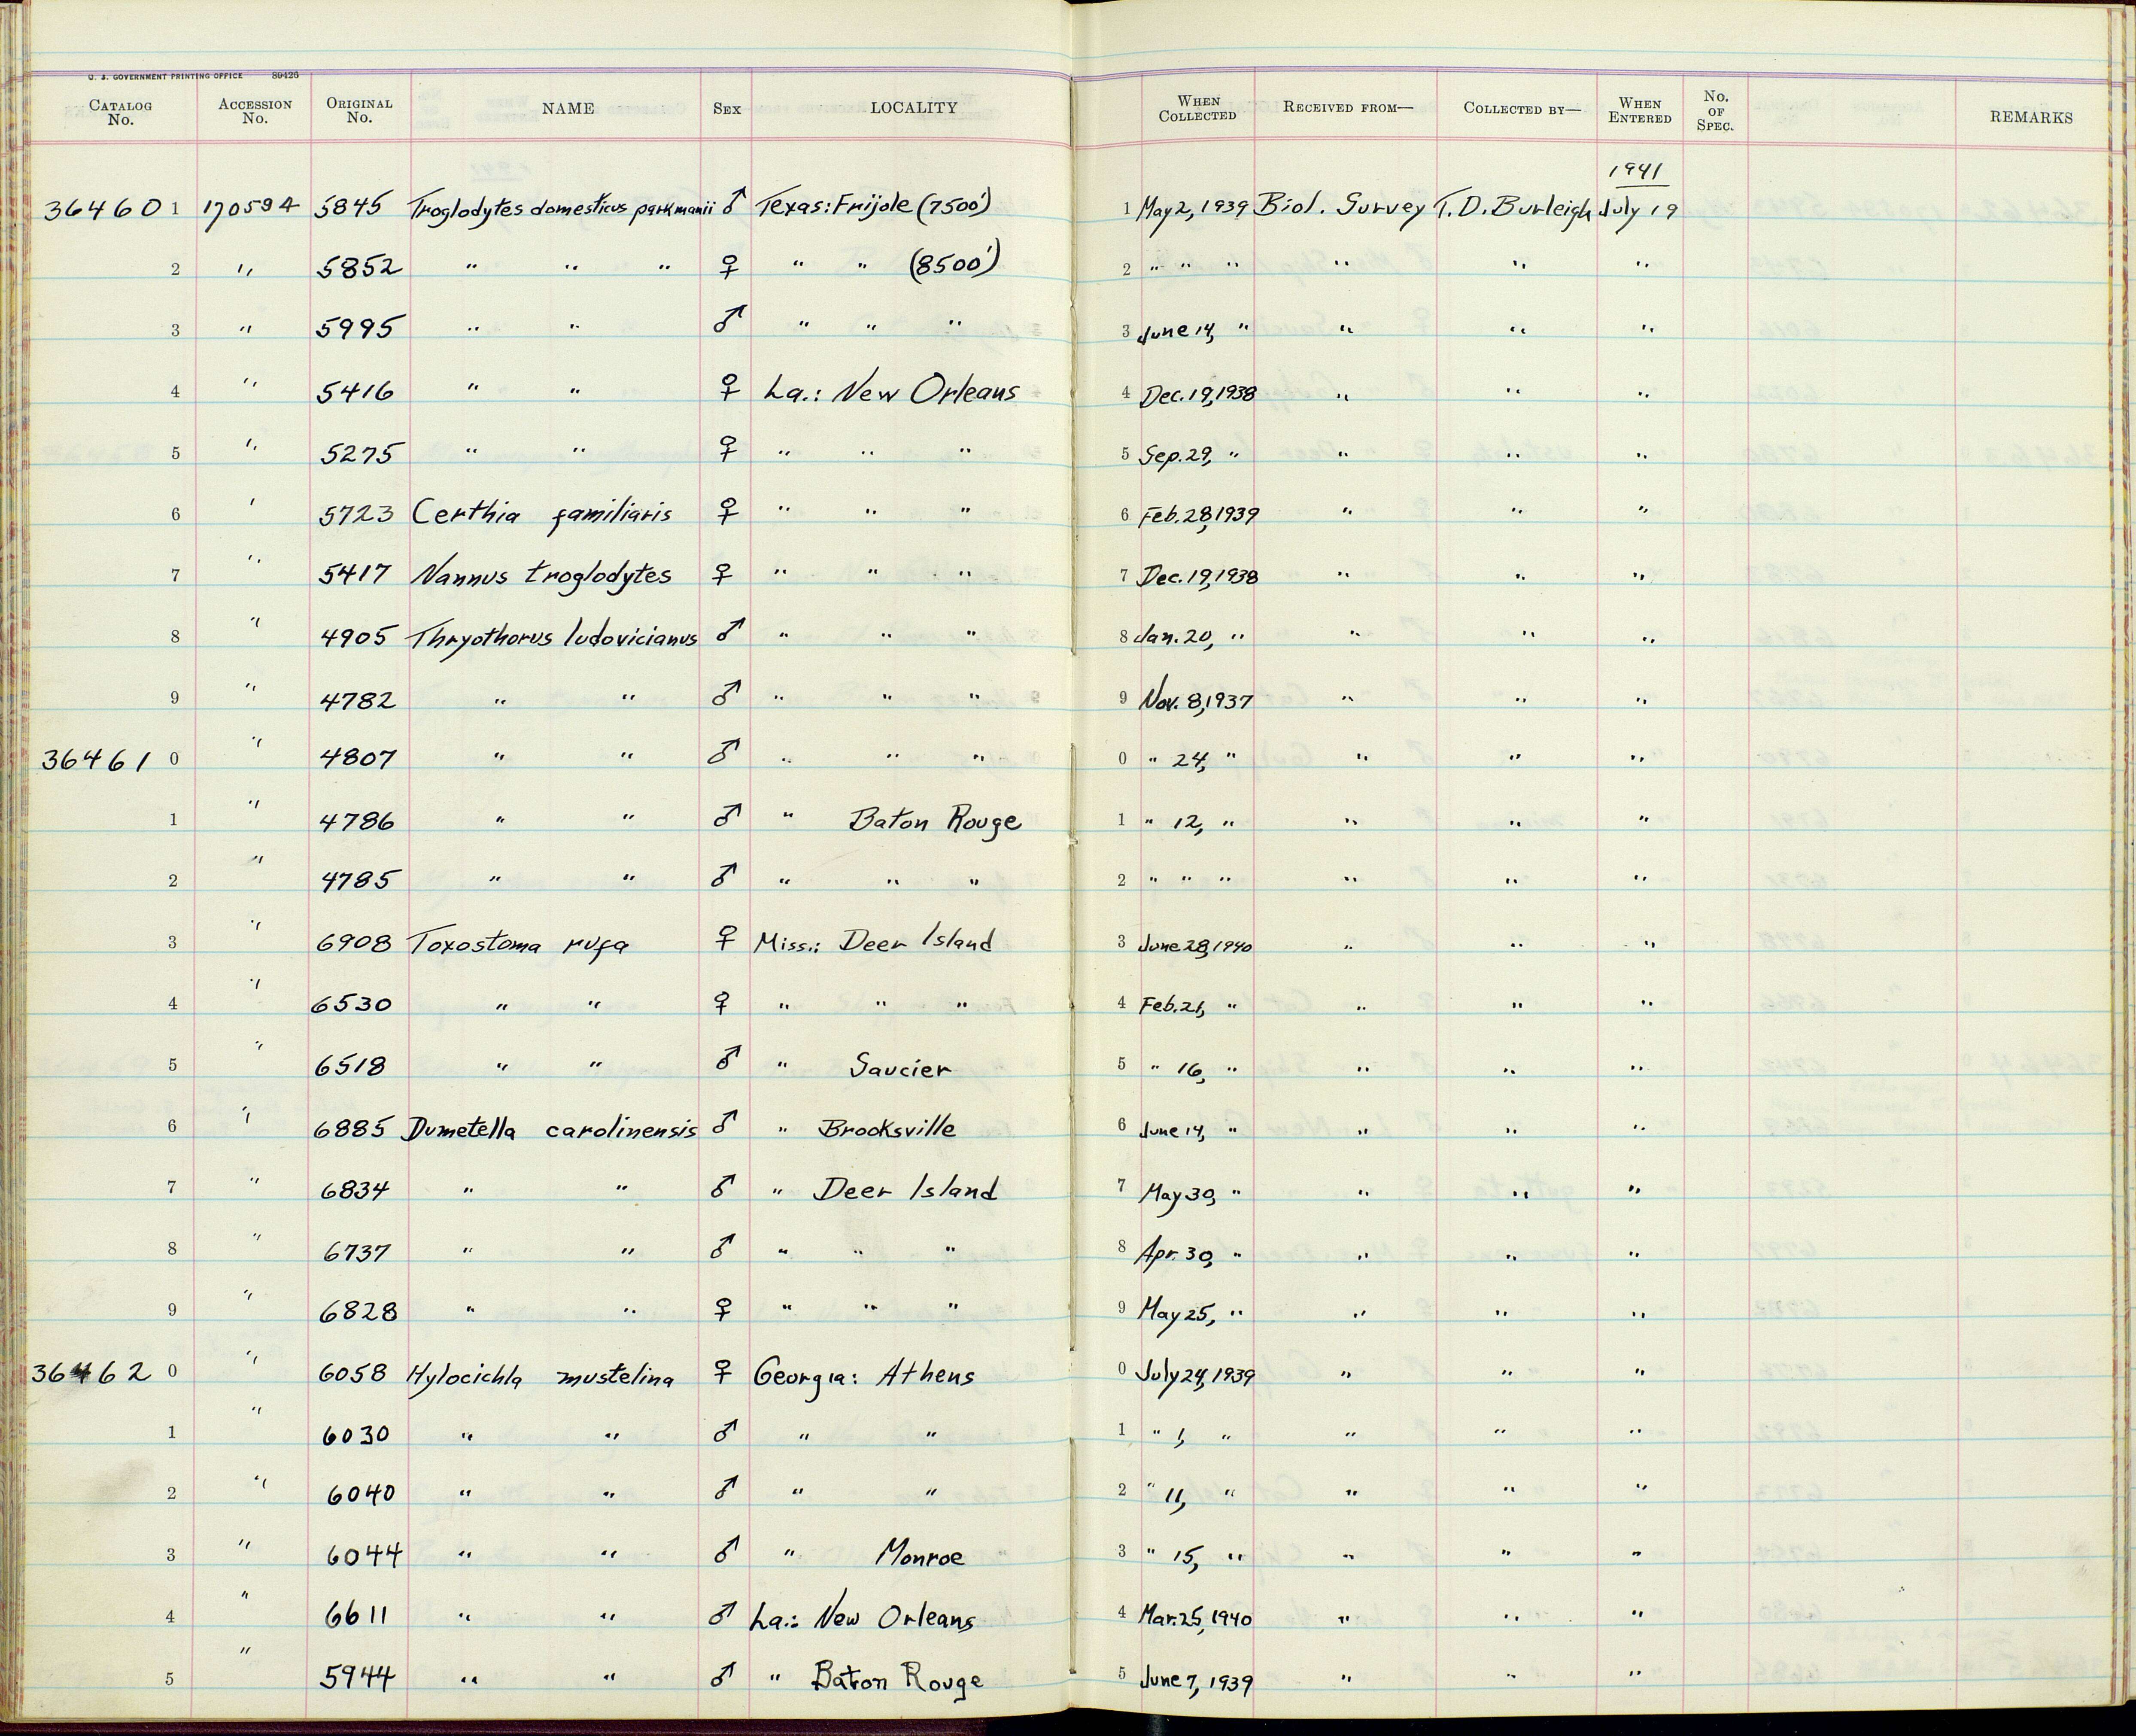 U. S. GOVERNMENT PRINTING OFFICE 89426
CATALOG No. ACCESSION No. ORIGINAL No. NAME SEX LOCALITY WHEN COLLECTED RECEIVED FROM— COLLECTED BY— WHEN ENTERED No. OF SPEC. REMARKS
1941
36460 1 170594 5845 Troglodytes domesticus parkmanii ♂ Texas: Frijole (7500') 1 May 2, 1939 Biol. Survey T. D. Burleigh July 19
2 " 5852 " " " ♀ " " (8500') 2 " " " " " "
3 " 5995 " " ♂ " " " 3 June 14, " " " "
4 " 5416 " " ♀ La.: New Orleans 4 Dec. 19, 1938 " " "
5 " 5275 " " ♀ " " " 5 Sep. 29, " " " "
6 " 5723 Certhia familiaris ♀ " " " 6 Feb. 28, 1939 " " "
7 " 5417 Nannus troglodytes ♀ " " " 7 Dec. 19, 1938 " " "
8 " 4905 Thryothorus ludovicianus ♂ " " " 8 Jan. 20, " " " "
9 " 4782 " " ♂ " " " 9 Nov. 8, 1937 " " "
36461 0 " 4807 " " ♂ " " " 0 " 24, " " " "
1 " 4786 " " ♂ " Baton Rouge 1 " 12, " " " "
2 " 4785 " " ♂ " " " 2 " " " " " "
3 " 6908 Toxostoma rufa ♀ Miss.: Deer Island 3 June 28, 1940 " " "
4 " 6530 " " ♀ " " " 4 Feb. 21, " " " "
5 " 6518 " " ♂ " Saucier 5 " 16, " " " "
6 " 6885 Dumetella carolinensis ♂ " Brooksville 6 June 14, " " " "
7 " 6834 " " ♂ " Deer Island 7 May 30, " " " "
8 " 6737 " " ♂ " " " 8 Apr. 30, " " " "
9 " 6828 " " ♀ " " " 9 May 25, " " " "
36462 0 " 6058 Hylocichla mustelina ♀ Georgia: Athens 0 July 24, 1939 " " "
1 " 6030 " " ♂ " " 1 " 1, " " " "
2 " 6040 " " ♂ " " 2 " 11, " " " "
3 " 6044 " " ♂ " Monroe 3 " 15, " " " "
4 " 6611 " " ♂ La.: New Orleans 4 Mar. 25, 1940 " " "
5 " 5944 " " ♂ " Baton Rouge 5 June 7, 1939 " " "